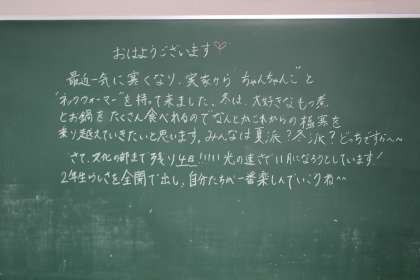 おはようございます♡
最近一気に寒くなり、実家から"ちゃんちゃんこ"と
"ネックウォーマー"を持って来ました。冬は、大好きなもつ煮
とお鍋をたくさん食べれるのでなんとかこれからの極寒を
乗り越えていきたいと思います。みんなは夏派?冬派?どっちですか〜〜
さて、文化の鮮まで残り4日!!!!!光の速さで11月になろうとしています!
2年生らしさを全開で出し、自分たちが一番楽しんでいこうね〜〜